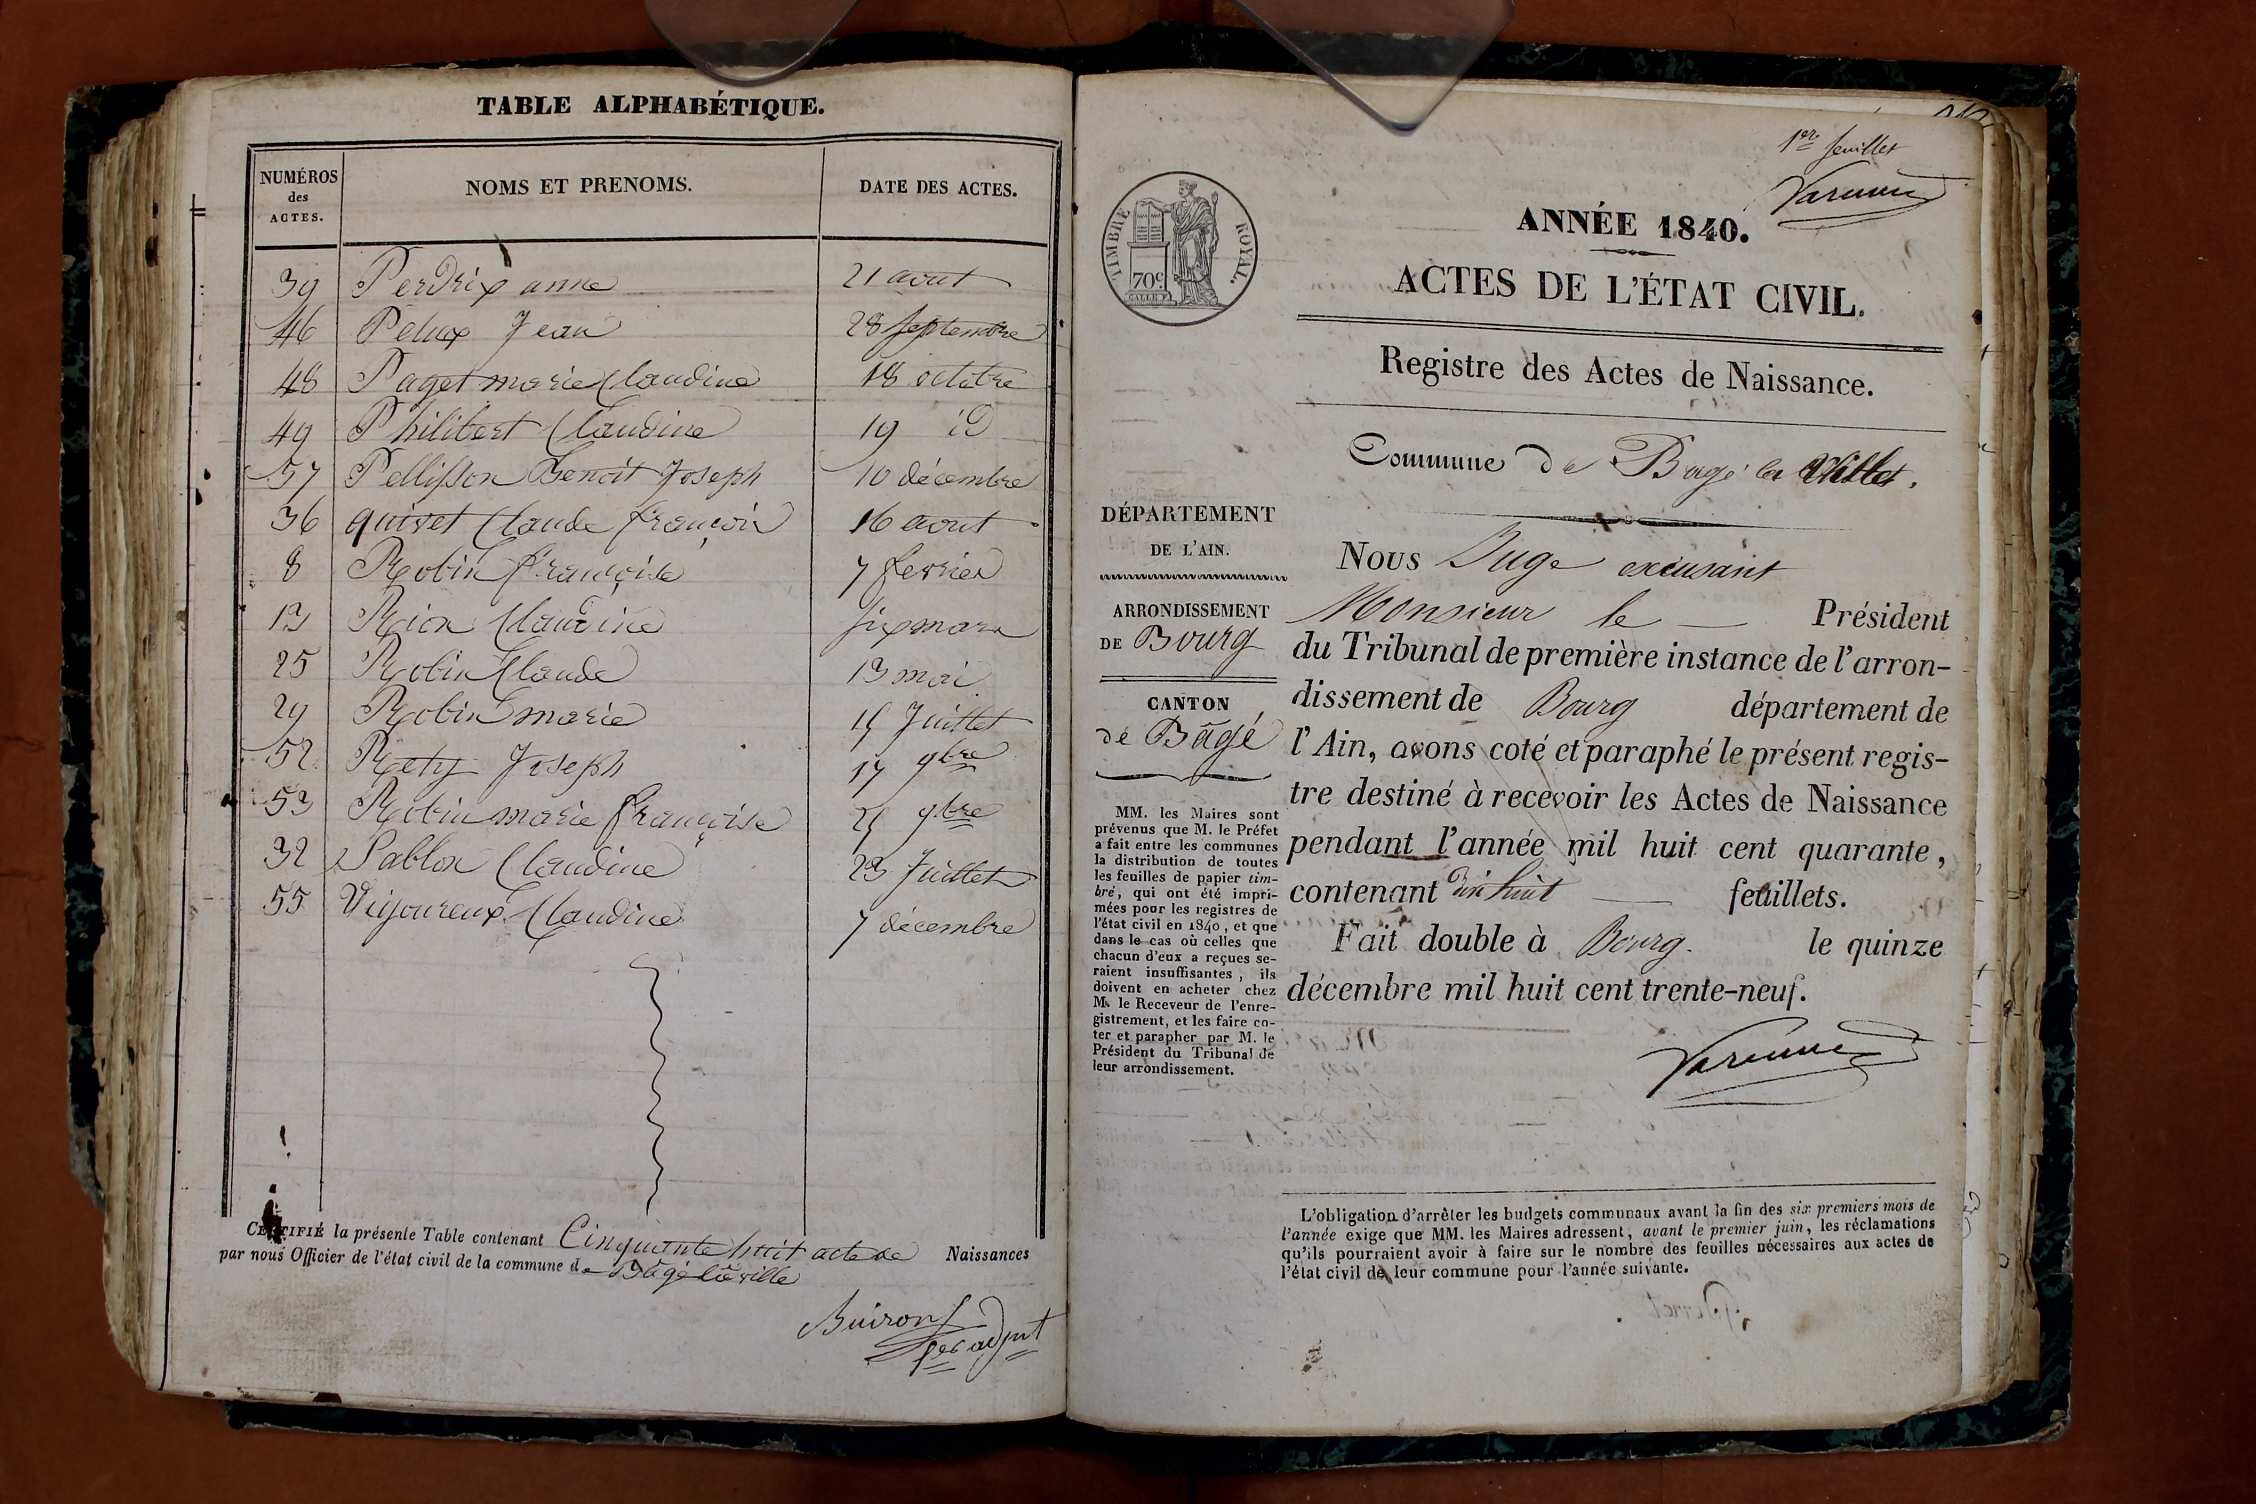 TABLE ALPHABÉTIQUE.
NUMÉROS des ACTES. NOMS ET PRENOMS. DATE DES ACTES.
39 Perdrix anne 21 aout
46 Pelux Jean 28 Septembre
48 Paget marie Claudine 18 octobre
49 Philibert Claudine 19 iD
57 Pellisson Benoit Joseph 10 décembre
36 quivet Claude françois 16 aout
8 Robin françoise 7 fevrier
13 Rion Claudine Six mars
25 Robin Claude 13 mai
29 Robin marie 15 Juillet
52 Rety Joseph 17 9bre
53 Robin marie françoise 25 9bre
32 Sablon Claudine 23 Juillet
55 Vigoureux Claudine 7 décembre
CERTIFIÉ la présente Table contenant Cinquante huit acte de Naissances
par nous Officier de l'état civil de la commune de Bâgé la ville
Buiron
1er adjnt
1er feuillet
Varenne
TIMBRE ROYAL.
70c
ANNÉE 1840.
ACTES DE L'ÉTAT CIVIL.
Registre des Actes de Naissance.
Commune de Bagé la Ville.
DÉPARTEMENT
DE L'AIN.
ARRONDISSEMENT
DE Bourg
CANTON
de Bâgé
MM. les Maires sont
prévenus que M. le Préfet
a fait entre les communes
la distribution de toutes
les feuilles de papier tim-
bré, qui ont été impri-
mées pour les registres de
l'état civil en 1840, et que
dans le cas où celles que
chacun d'eux a reçues se-
raient insuffisantes, ils
doivent en acheter chez
M. le Receveur de l'enre-
gistrement, et les faire co-
ter et parapher par M. le
Président du Tribunal de
leur arrondissement.
Nous Juge excusant
Monsieur le Président
du Tribunal de première instance de l'arron-
dissement de Bourg département de
l'Ain, avons coté et paraphé le présent regis-
tre destiné à recevoir les Actes de Naissance
pendant l'année mil huit cent quarante,
contenant dix huit feuillets.
Fait double à Bourg. le quinze
décembre mil huit cent trente-neuf.
Varenne
L'obligation d'arrêter les budgets communaux avant la fin des six premiers mois de
l'année exige que MM. les Maires adressent, avant le premier juin, les réclamations
qu'ils pourraient avoir à faire sur le nombre des feuilles nécessaires aux actes de
l'état civil de leur commune pour l'année suivante.